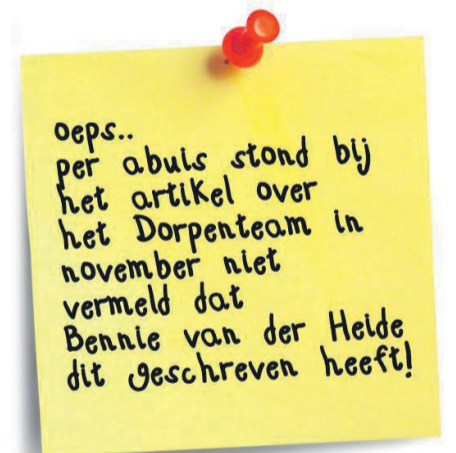 oeps..
per abuis stond bij
het artikel over
het Dorpenteam in
november niet
vermeld dat
Bennie van der Heide
dit geschreven heeft!